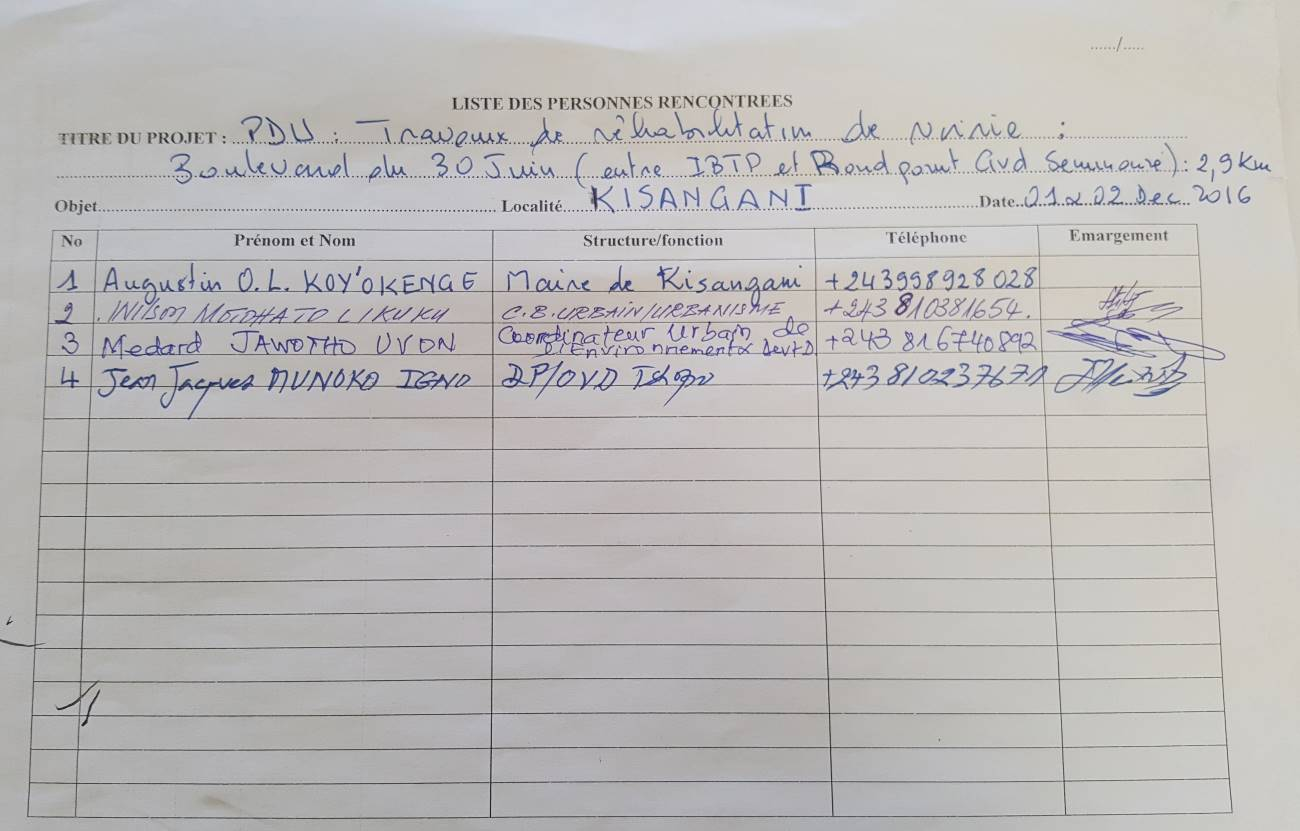 ....../.....
LISTE DES PERSONNES RENCONTREES
TITRE DU PROJET : PDU : Travaux de réhabilitation de voirie :
Boulevard du 30 Juin (entre IBTP et Rond point Gvd Seminaire) : 2,9 Km
Objet Localité KISANGANI Date 01 & 02 Dec 2016
No Prénom et Nom Structure/fonction Téléphone Emargement
1 Augustin O.L. KOY'OKENGE Maire de Kisangani +243998928028
2 Wilson LIKUKU C.B. URBAIN/URBANISME +243 810381654.
3 Medard JAWOTHO UVON Coordinateur Urbain de l'Environnement & Devt D. +243 816740892
4 Jean Jacques MUNOKO IGNO DP/OVD Tshopo +243 810237671